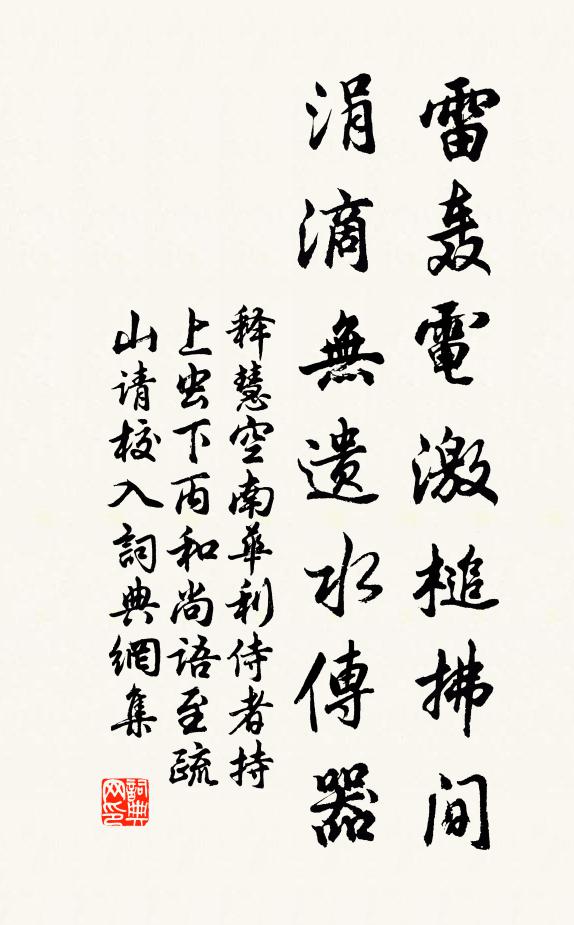 雷轰電激槌拂间
涓滴無遗水傳器
释慧空南華利侍者持
上虫下丙和尚语至疏
山请校入詞典網集
詞典网印